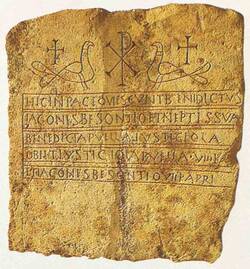 HICINPACEQVIESCVNTBENIDICTVS
DIACONESBESONTIOETNEPTISSVA
BENEDICTAPVELLAIVSTICIOLA
OBIITIVSTICIOLAPVELLA
DIACONESBESONTIO APRI